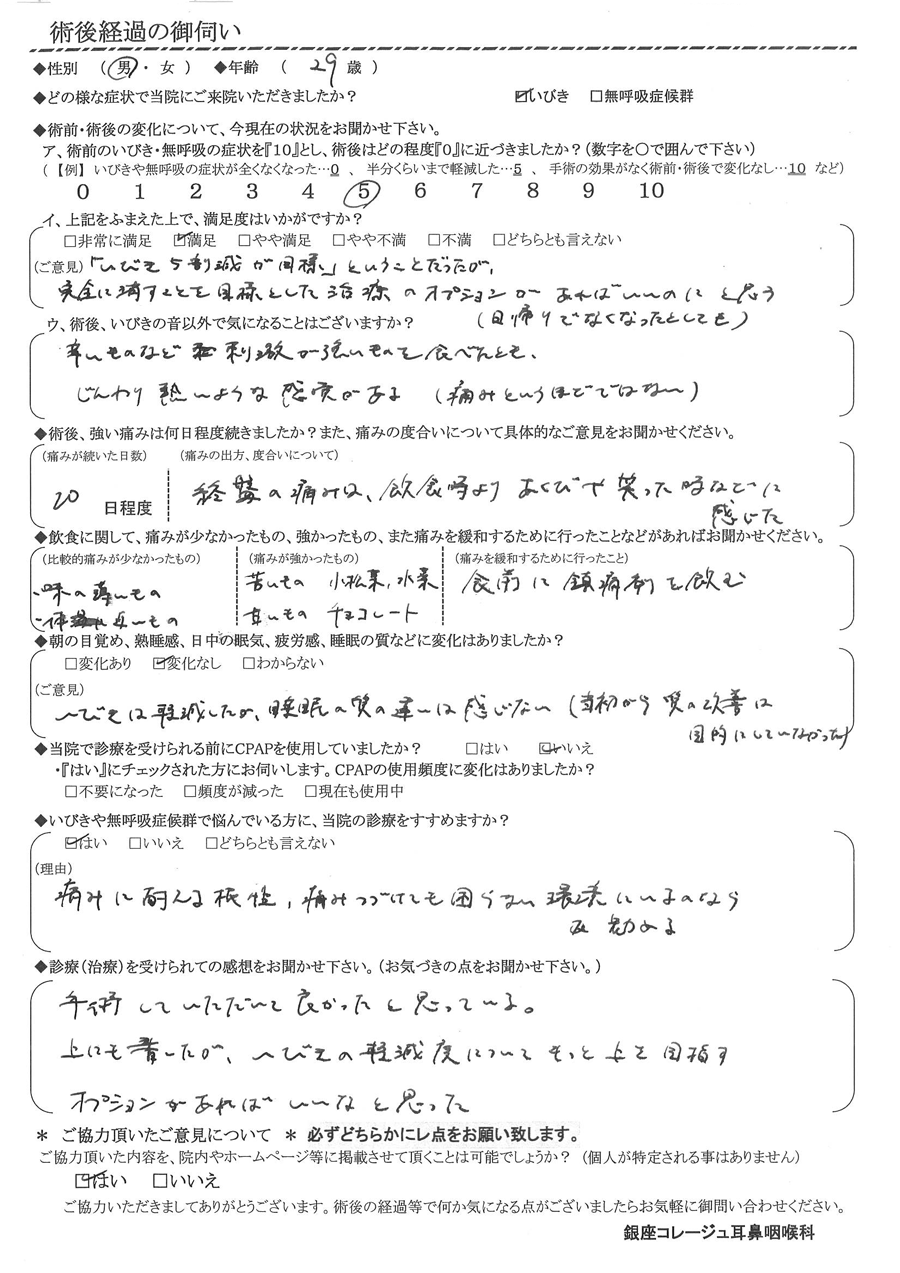 術後経過の御伺い
◆性別 （ 男 ・ 女 ） ◆年齢 （ 29 歳 ）
◆どの様な症状で当院にご来院いただきましたか？ ☑いびき □無呼吸症候群
◆術前・術後の変化について、今現在の状況をお聞かせ下さい。
ア、術前のいびき・無呼吸の症状を『10』とし、術後はどの程度『0』に近づきましたか？（数字を○で囲んで下さい）
（【例】 いびきや無呼吸の症状が全くなくなった…0 、 半分くらいまで軽減した…5 、 手術の効果がなく術前・術後で変化なし…10 など）
0 1 2 3 4 5 6 7 8 9 10
イ、上記をふまえた上で、満足度はいかがですか？
□非常に満足 ☑満足 □やや満足 □やや不満 □不満 □どちらとも言えない
（ご意見）「いびき5割減が目標」ということだったが、
完全に消すことを目標とした治療のオプションがあればいいのにと思う
（日帰りでなくなったとしても）
ウ、術後、いびきの音以外で気になることはございますか？
辛いものなど 刺激が強いものを食べんとも、
じんわり熱いような感覚がある （痛みというほどではない）
◆術後、強い痛みは何日程度続きましたか？また、痛みの度合いについて具体的なご意見をお聞かせください。
（痛みが続いた日数） （痛みの出方、度合いについて）
20 日程度 終盤の痛みは、飲食時よりあくびや笑った時などに
感じた
◆飲食に関して、痛みが少なかったもの、強かったもの、また痛みを緩和するために行ったことなどがあればお聞かせください。
（比較的痛みが少なかったもの） （痛みが強かったもの） （痛みを緩和するために行ったこと）
・味の薄いもの 苦いもの 小松菜、水菜 食前に鎮痛剤を飲む
甘いもの チョコレート
◆朝の目覚め、熟睡感、日中の眠気、疲労感、睡眠の質などに変化はありましたか？
□変化あり ☑変化なし □わからない
（ご意見）
いびきは軽減したが、睡眠の質の違いは感じない（当初から質の改善は
目的にしていなかった）
◆当院で診療を受けられる前にCPAPを使用していましたか？ □はい ☑いいえ
・『はい』にチェックされた方にお伺いします。CPAPの使用頻度に変化はありましたか？
□不要になった □頻度が減った □現在も使用中
◆いびきや無呼吸症候群で悩んでいる方に、当院の診療をすすめますか？
☑はい □いいえ □どちらとも言えない
（理由）
痛みに耐える根性，痛みつづけても困らない環境にいるのなら
勧める
◆診療（治療）を受けられての感想をお聞かせ下さい。（お気づきの点をお聞かせ下さい。）
手術していただいて良かったと思っている。
上にも書いたが、いびきの軽減度についてもっと上を目指す
オプションがあればいいなと思った
＊ ご協力頂いたご意見について ＊ 必ずどちらかにレ点をお願い致します。
ご協力頂いた内容を、院内やホームページ等に掲載させて頂くことは可能でしょうか？ （個人が特定される事はありません）
☑はい □いいえ
ご協力いただきましてありがとうございます。術後の経過等で何か気になる点がございましたらお気軽に御問い合わせください。
銀座コレージュ耳鼻咽喉科